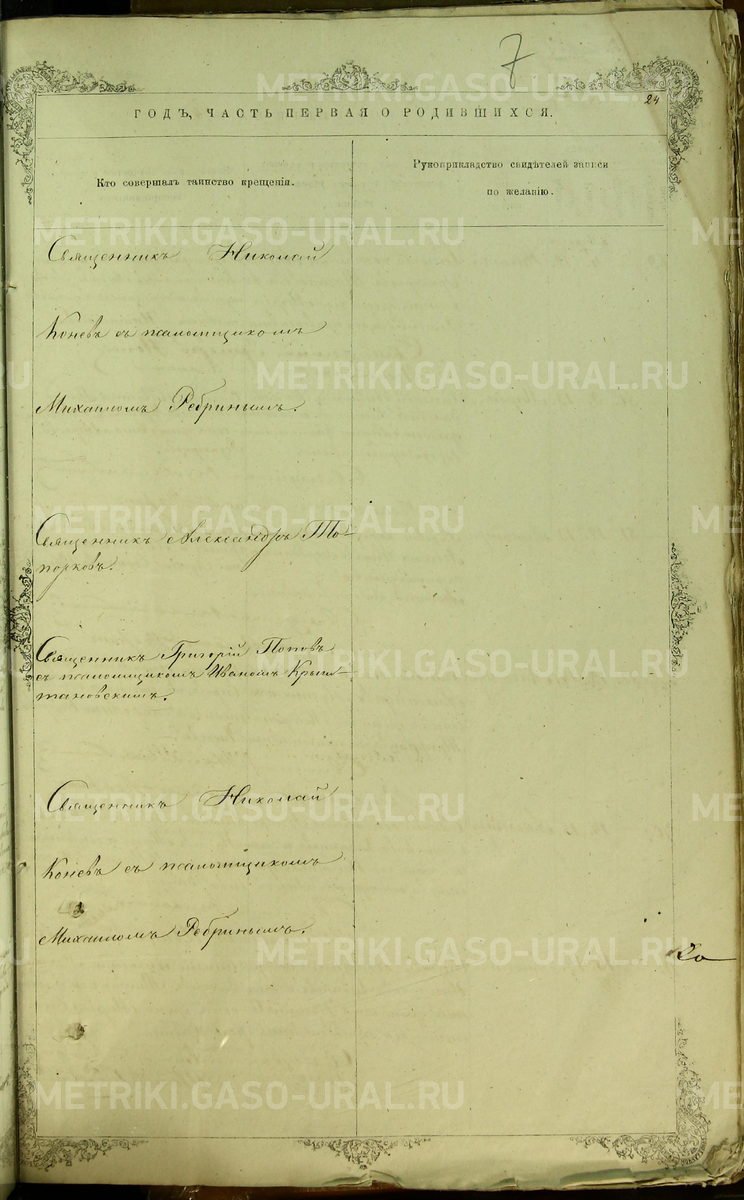 7
24
ГОДЪ, ЧАСТЬ ПЕРВАЯ О РОДИВШИХСЯ.
Кто совершалъ таинство крещенія.
Рукоприкладство свидѣтелей записи
по желанію.
Священникъ Николай
Коневъ съ псаломщикомъ
Михаиломъ Ребринымъ.
Священникъ Александръ То-
порковъ.
Священникъ Григорій Поповъ
съ псаломщикомъ Иваномъ
тановскимъ.
Священникъ Николай
Коневъ съ псаломщикомъ
Михаиломъ Ребринымъ.
METRIKI.GASO-URAL.RU